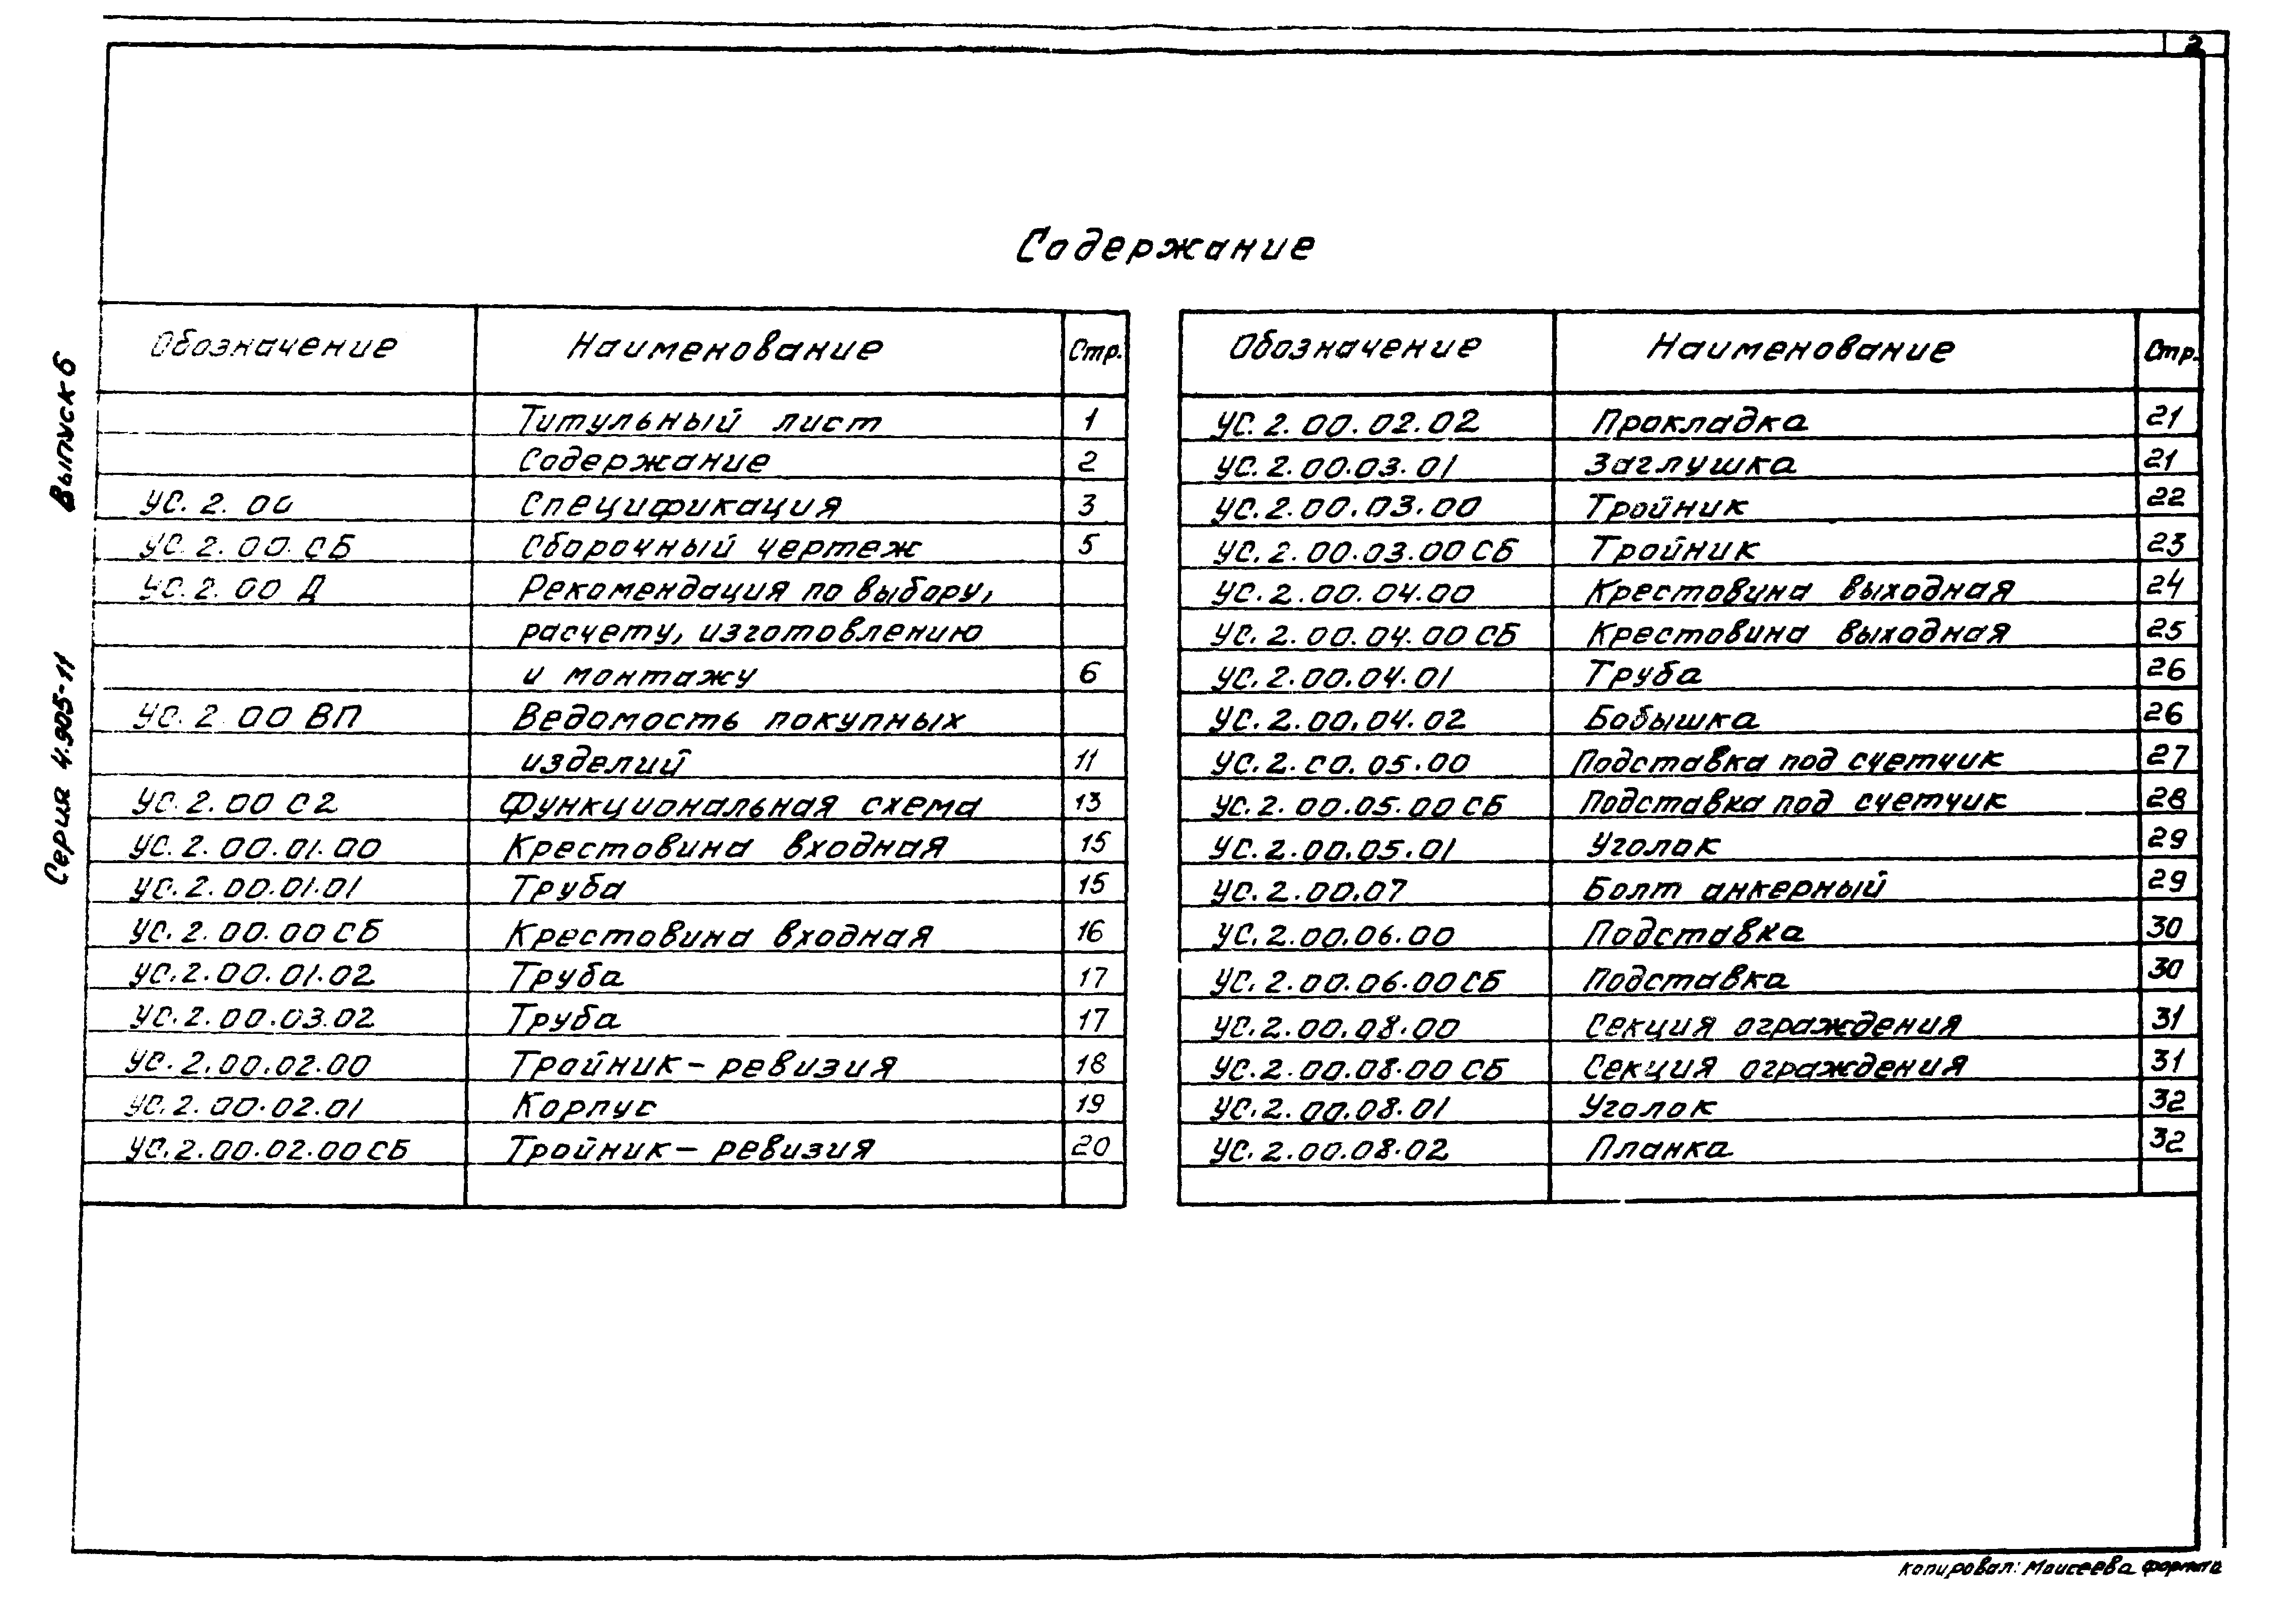 2
Содержание
Выпуск 6
Серия 4.905-11
Обозначение Наименование Стр.
Титульный лист 1
Содержание 2
УС. 2. 00 Спецификация 3
УС. 2. 00. СБ Сборочный чертеж 5
УС. 2. 00 Д Рекомендация по выбору,
расчету, изготовлению
и монтажу 6
УС. 2 00 ВП Ведомость покупных
изделий 11
УС. 2. 00 С2 Функциональная схема 13
УС. 2. 00. 01. 00 Крестовина входная 15
УС. 2. 00. 01. 01 Труба 15
УС. 2. 00. 00 СБ Крестовина входная 16
УС. 2. 00. 01. 02 Труба 17
УС. 2. 00. 03. 02 Труба 17
УС. 2. 00. 02. 00 Тройник - ревизия 18
УС. 2. 00. 02. 01 Корпус 19
УС. 2. 00. 02. 00 СБ Тройник - ревизия 20
Обозначение Наименование Стр.
УС. 2. 00. 02. 02 Прокладка 21
УС. 2. 00. 03. 01 Заглушка 21
УС. 2. 00. 03. 00 Тройник 22
УС. 2. 00. 03. 00 СБ Тройник 23
УС. 2. 00. 04. 00 Крестовина выходная 24
УС. 2. 00. 04. 00 СБ Крестовина выходная 25
УС. 2. 00. 04. 01 Труба 26
УС. 2. 00. 04. 02 Бобышка 26
УС. 2. 00. 05. 00 Подставка под счетчик 27
УС. 2. 00. 05. 00 СБ Подставка под счетчик 28
УС. 2. 00. 05. 01 Уголок 29
УС. 2. 00. 07 Болт анкерный 29
УС. 2. 00. 06. 00 Подставка 30
УС. 2. 00. 06. 00 СБ Подставка 30
УС. 2. 00. 08. 00 Секция ограждения 31
УС. 2. 00. 08. 00 СБ Секция ограждения 31
УС. 2. 00. 08. 01 Уголок 32
УС. 2. 00. 08. 02 Планка 32
Копировал: Моисеева